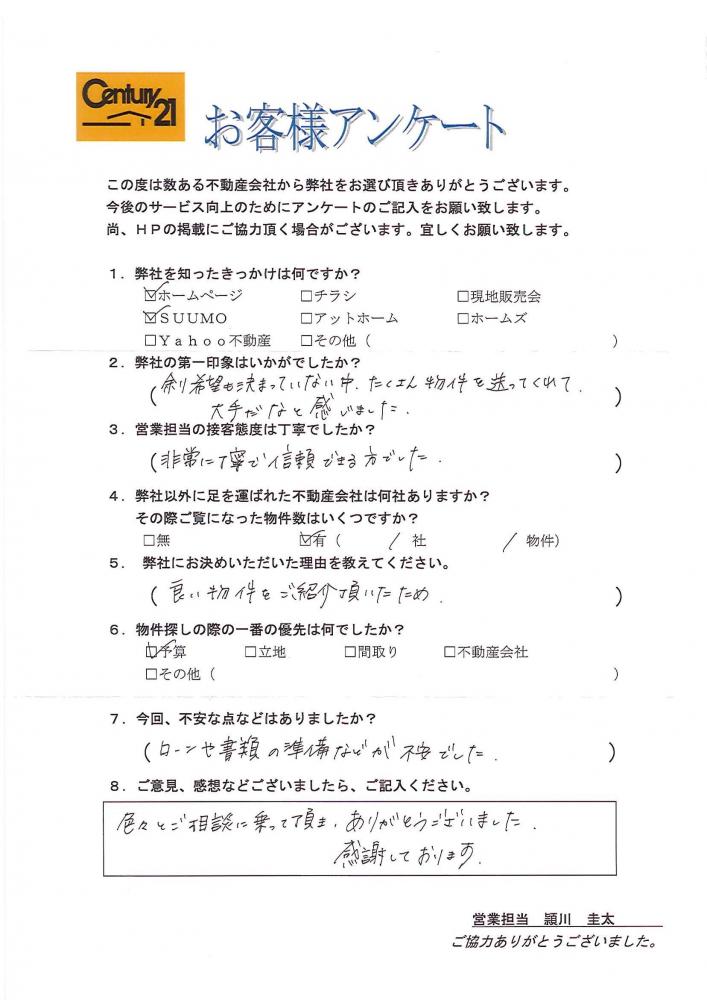 Century 21
お客様アンケート
この度は数ある不動産会社から弊社をお選び頂きありがとうございます。
今後のサービス向上のためにアンケートのご記入をお願い致します。
尚、HPの掲載にご協力頂く場合がございます。宜しくお願い致します。
1．弊社を知ったきっかけは何ですか？
☑ホームページ □チラシ □現地販売会
☑SUUMO □アットホーム □ホームズ
□Yahoo不動産 □その他（ ）
2．弊社の第一印象はいかがでしたか？
（余り希望も決まっていない中、たくさん物件を送ってくれて、
大手だなと感じました。）
3．営業担当の接客態度は丁寧でしたか？
（非常に丁寧で信頼できる方でした。）
4．弊社以外に足を運ばれた不動産会社は何社ありますか？
その際ご覧になった物件数はいくつですか？
□無 ☑有（ 1 社 1 物件）
5． 弊社にお決めいただいた理由を教えてください。
（良い物件をご紹介頂いたため。）
6．物件探しの際の一番の優先は何でしたか？
☑予算 □立地 □間取り □不動産会社
□その他（ ）
7．今回、不安な点などはありましたか？
（ローンや書類の準備などが不安でした。）
8．ご意見、感想などございましたら、ご記入ください。
色々とご相談に乗って頂き、ありがとうございました。
感謝しております。
営業担当 頴川 圭太
ご協力ありがとうございました。